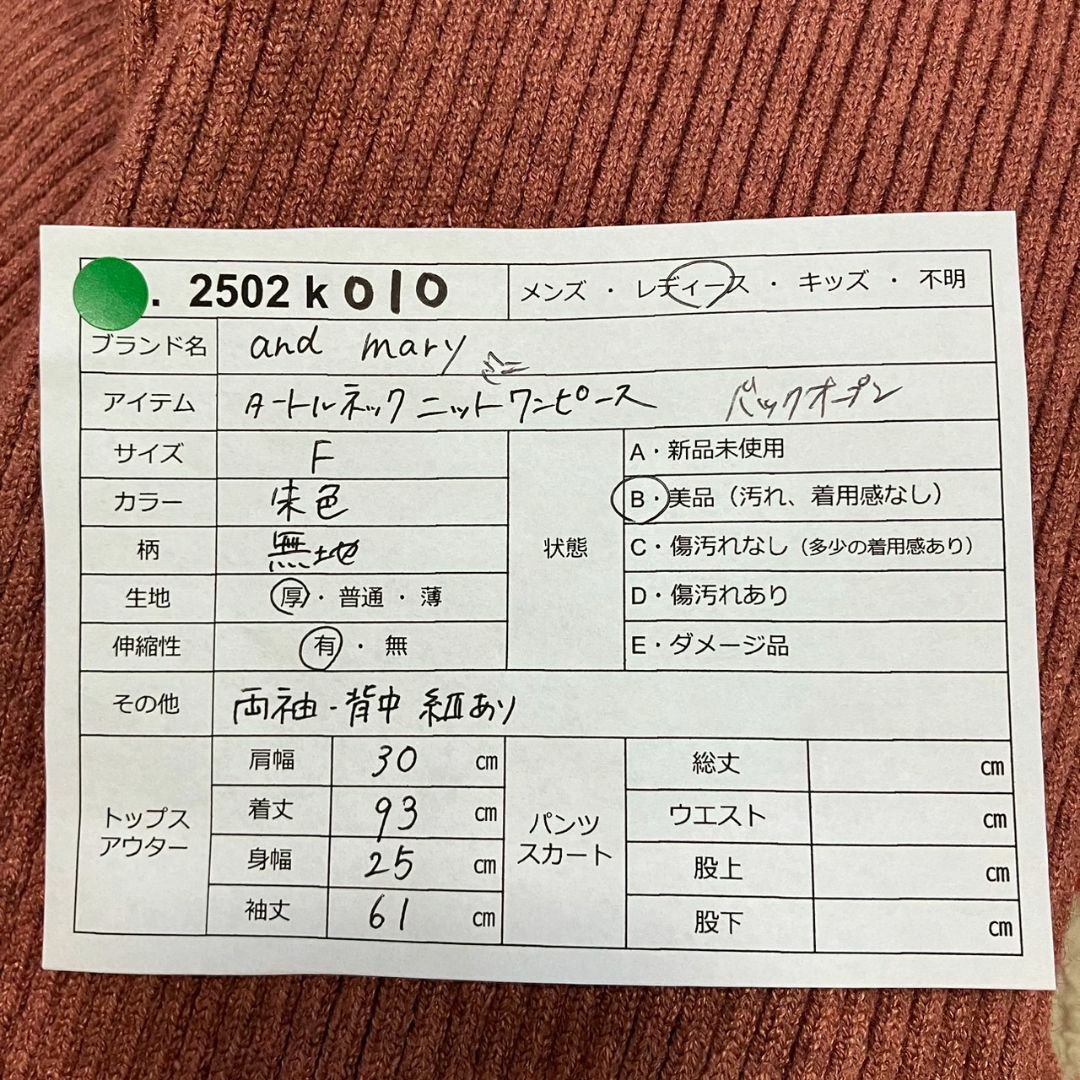 . 2502 k 010 メンズ ・ レディース ・ キッズ ・ 不明
ブランド名 and mary
アイテム タートルネック ニットワンピース バックオープン
サイズ F
カラー 朱色
柄 無地
生地 厚 ・ 普通 ・ 薄
伸縮性 有 ・ 無
状態
A・新品未使用
B・美品（汚れ、着用感なし）
C・傷汚れなし（多少の着用感あり）
D・傷汚れあり
E・ダメージ品
その他 両袖・背中 紐あり
トップス
アウター
肩幅 30 ㎝
着丈 93 ㎝
身幅 25 ㎝
袖丈 61 ㎝
パンツ
スカート
総丈 ㎝
ウエスト ㎝
股上 ㎝
股下 ㎝